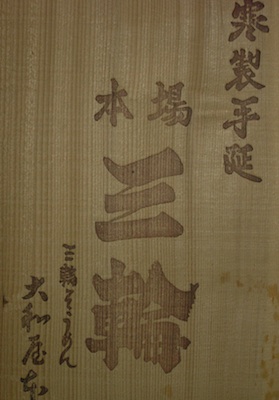 寒製手延
本場
三輪
三輪そうめん
大和屋本